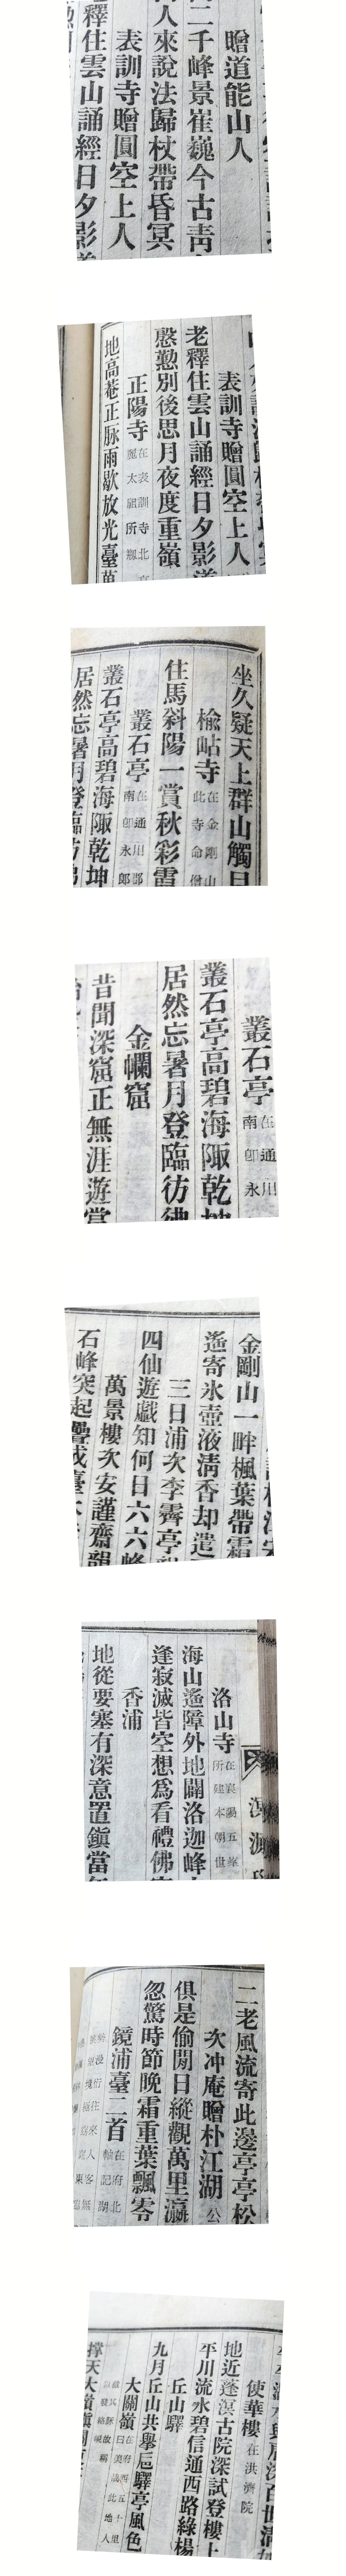 贈道能山人
二千峰景崔巍今古靑
人來說法歸杖帶昏冥
表訓寺贈圓空上人
釋住雲山誦經日夕影
表訓寺贈圓空上人
老釋住雲山誦經日夕影
慇懃別後思月夜度重嶺
正陽寺
在表訓寺北
麗太祖所
地高菴正脉雨歇放光臺
坐久疑天上群山觸
楡岾寺
在金剛山
此寺命
住馬斜陽一賞秋彩
叢石亭
在通川郡
南卽永郞
叢石亭高碧海陬乾坤
居然忘暑月登臨彷
叢石亭
在通川
南卽永
叢石亭高碧海陬乾
居然忘暑月登臨彷彿
金幱窟
昔聞深窟正無涯遊當
金剛山一畔楓葉帶霜
遙寄氷壺液淸香却遣
三日浦次李霽亭
四仙遊戱知何日六六峰
萬景樓次安謹齋韻
石峰突起疊成臺
洛山寺
在襄陽五峯
所建本朝世
海山遙障外地闢洛迦峰
逢寂滅皆空想爲看禮佛
香浦
地從要塞有深意置鎭當
二老風流寄此邊亭亭松
次冲庵贈朴江湖
公
俱是偸閒日縱觀萬里瀛
忽驚時節晩霜重葉飄零
鏡浦臺二首
在府北
使華樓
在洪濟院
地近蓬溟古院深試登樓上
平川流水碧信通西路綠楊
丘山驛
九月丘山共擧巵驛亭風色
大關嶺
在府西五十里
撑天大嶺鎭關